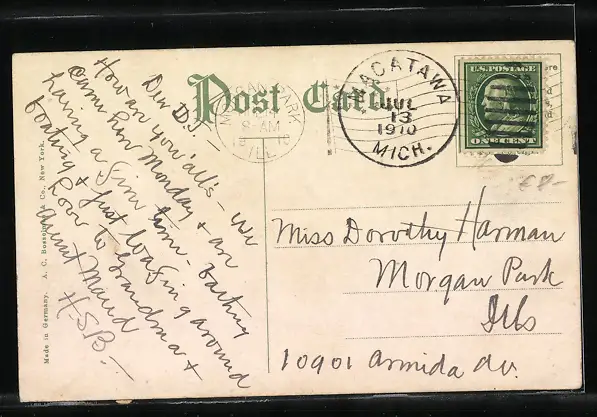 Post Card
MACATAWA
JUL
13
1910
MICH.
PARK
8-AM
ILL
U.S. POSTAGE
ONE CENT
Dear D.J. –
How are you'alls – We
came here Monday & are
having a fine time – Bathing
boating & just loafing around
Love to Grandma &
Aunt Maud
H.S.B. –
Miss Dorothy Harman
Morgan Park
Ills
10901 Armida Av.
€8-
Made in Germany. A. C. Bosselman & Co., New York.